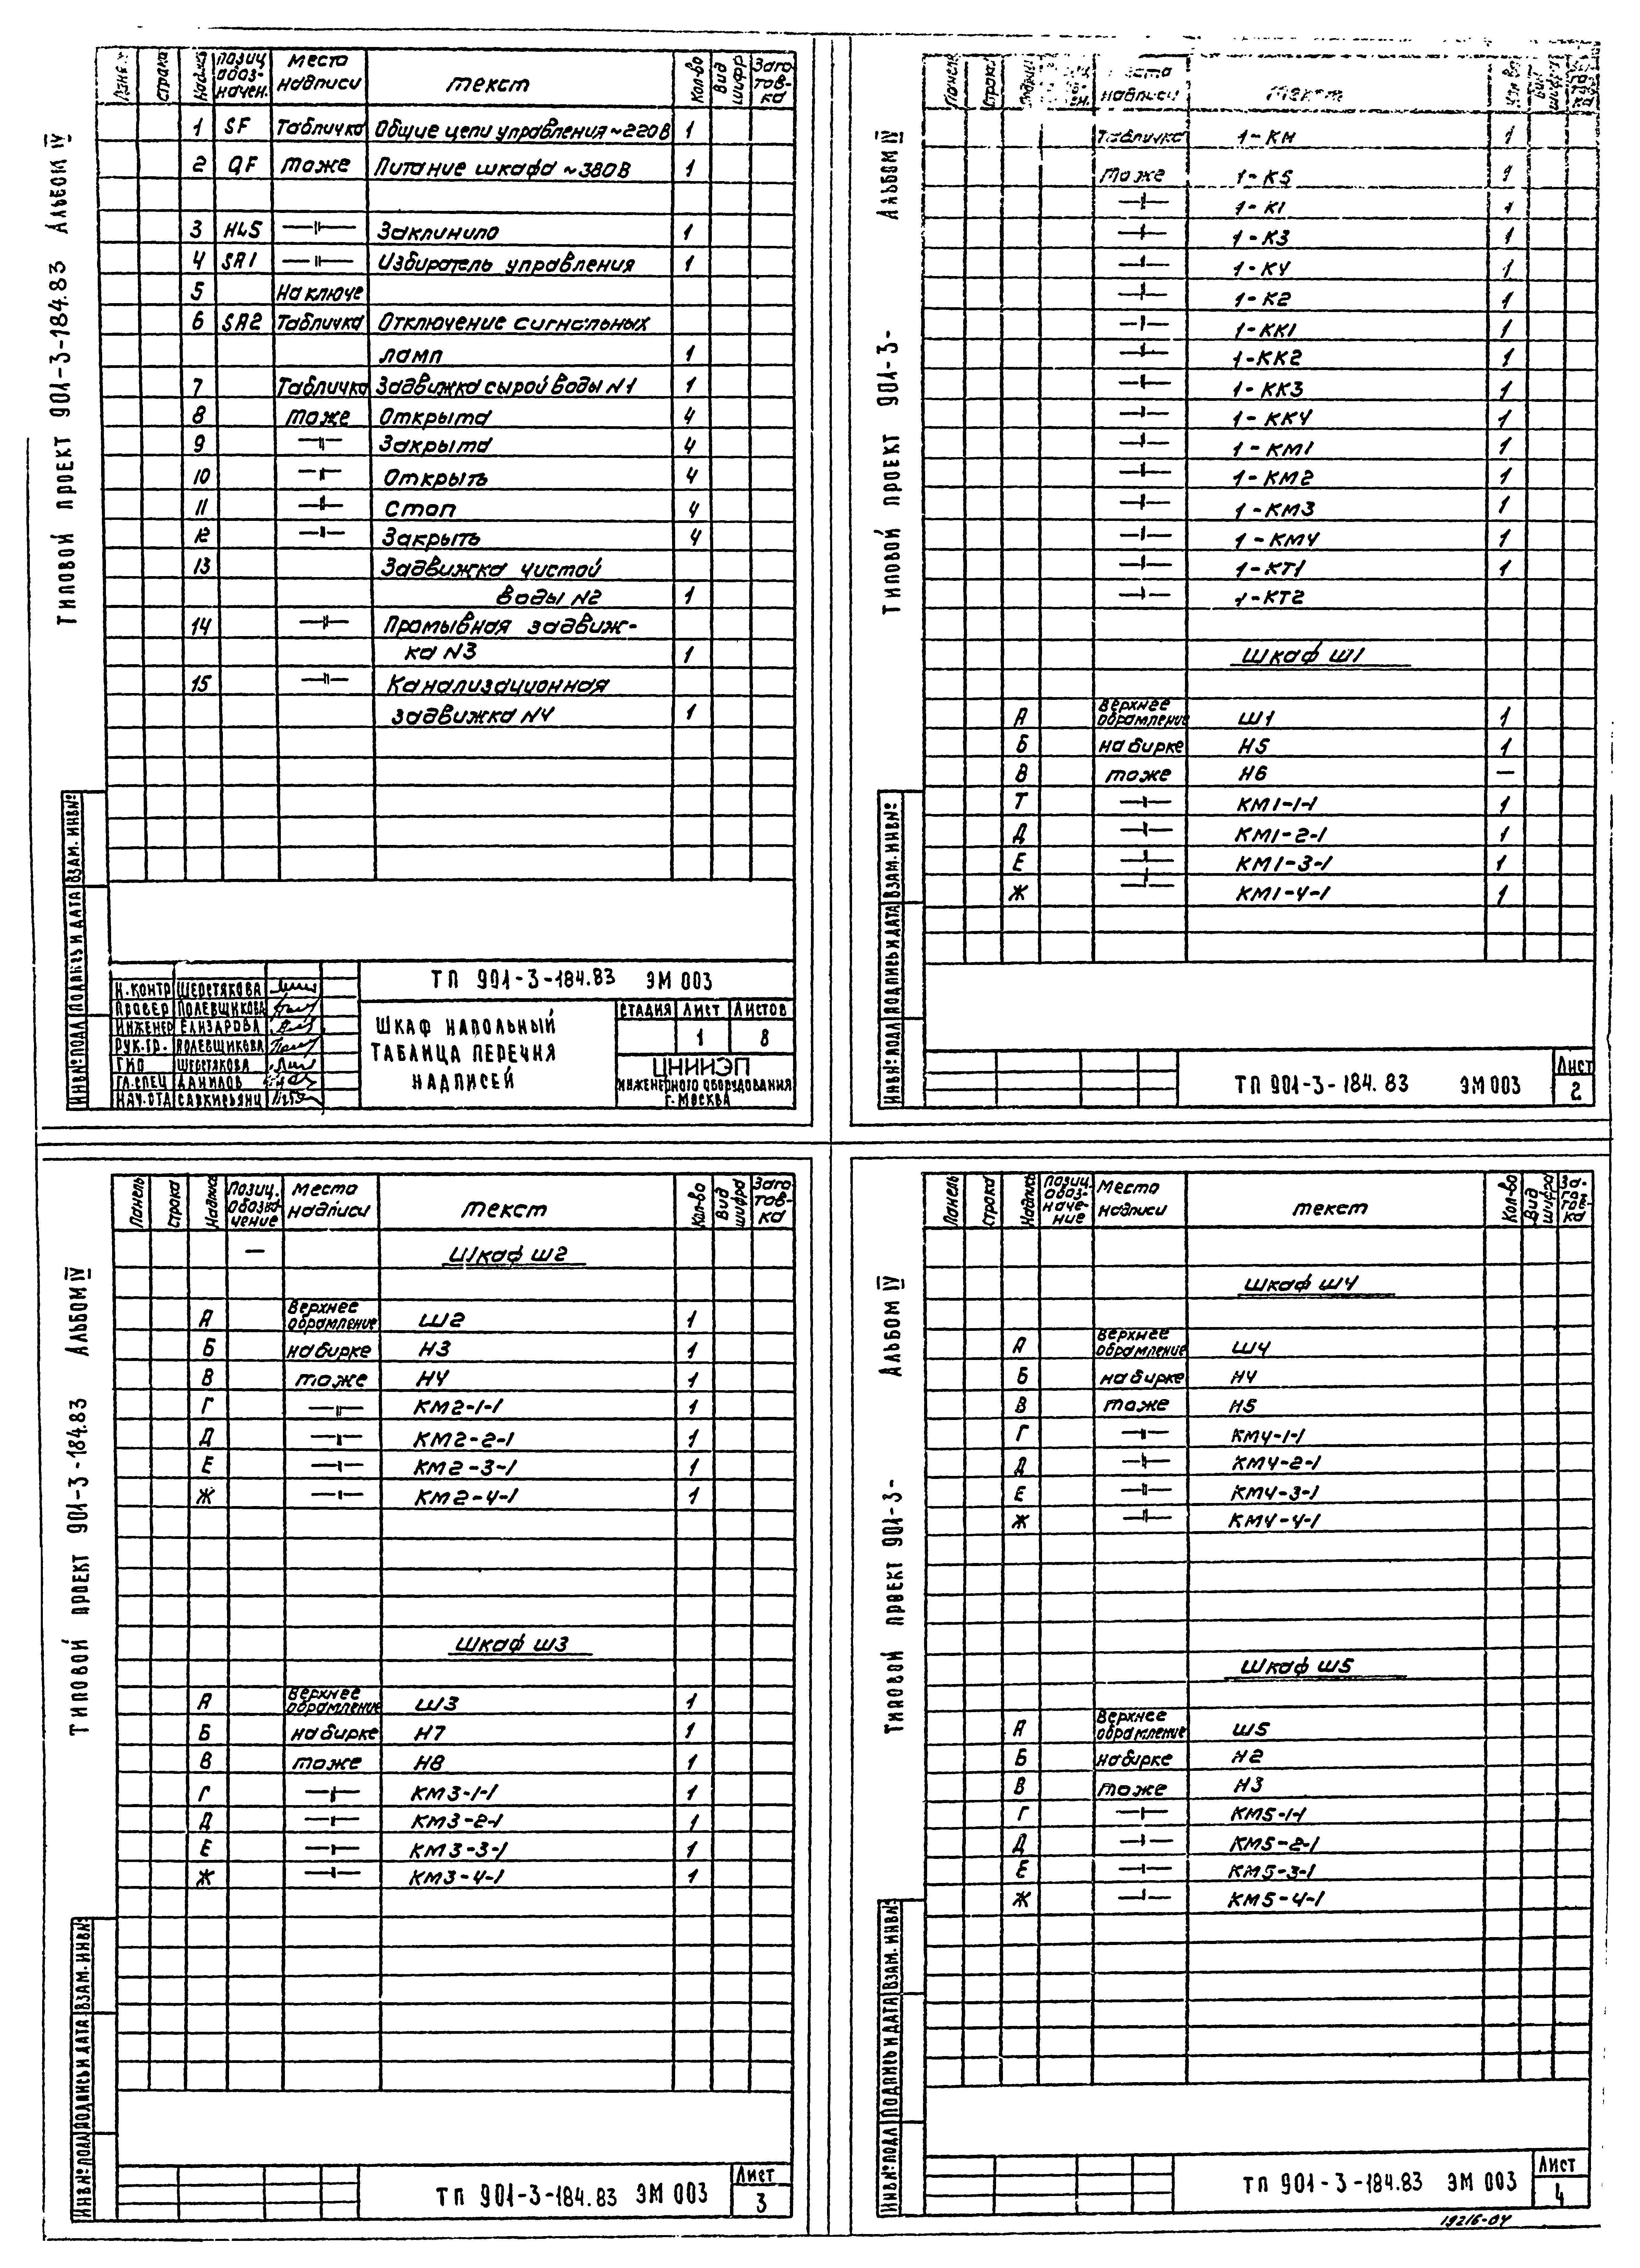 Альбом IV
Типовой проект 901-3-184.83
Панель Строка Надпись Позиц. обоз-начен. Место надписи Текст Кол-во Вид шифр Заго тов-ка
1 SF Табличка Общие цепи управления ~220В 1
2 QF тоже Питание шкафа ~380В 1
3 HL5 —"— Заклинило 1
4 SA1 —"— Избиратель управления 1
5 На ключе
6 SA2 Табличка Отключение сигнальных
ламп 1
7 Табличка Задвижка сырой воды N1 1
8 тоже Открыта 4
9 —"— Закрыта 4
10 —"— Открыть 4
11 —"— Стоп 4
12 —"— Закрыть 4
13 Задвижка чистой
воды N2 1
14 —"— Промывная задвиж-
ка N3 1
15 —"— Канализационная
задвижка N4 1
Инв№ подл Подпись и дата Взам. инв№
Н.контр Шерстякова
Провер Полевщикова
Инженер Елизарова
Рук.гр. Полевщикова
ГИО Шерстякова
Гл.спец Данилов
Нач.отд Саркисьянц
ТП 901-3-184.83 ЭМ 003
Шкаф напольный
Таблица перечня
надписей
Стадия Лист Листов
1 8
ЦНИИЭП
инженерного оборудования
г. Москва
Альбом IV
Типовой проект 901-3-
Панель Строка надписи текст
Табличка 1-КН 1
тоже 1-К5 1
—"— 1-К1 1
—"— 1-К3 1
—"— 1-К4 1
—"— 1-К2 1
—"— 1-КК1 1
—"— 1-КК2 1
—"— 1-КК3 1
—"— 1-КК4 1
—"— 1-КМ1 1
—"— 1-КМ2 1
—"— 1-КМ3 1
—"— 1-КМ4 1
—"— 1-КТ1 1
—"— 1-КТ2
Шкаф Ш1
А Верхнее обрамление Ш1 1
Б на бирке Н5 1
В тоже Н6 —
Т —"— КМ1-1-1 1
Д —"— КМ1-2-1 1
Е —"— КМ1-3-1 1
Ж —"— КМ1-4-1 1
Инв№ подл Подпись и дата Взам. инв№
ТП 901-3-184.83 ЭМ 003
Лист
2
Альбом IV
Типовой проект 901-3-184.83
Панель Строка Надпись Позиц. обозна чение Место надписи текст Кол-во Вид шифра Заго тов-ка
— Шкаф Ш2
А Верхнее обрамление Ш2 1
Б на бирке Н3 1
В тоже Н4 1
Г —"— КМ2-1-1 1
Д —"— КМ2-2-1 1
Е —"— КМ2-3-1 1
Ж —"— КМ2-4-1 1
Шкаф Ш3
А Верхнее обрамление Ш3 1
Б на бирке Н7 1
В тоже Н8 1
Г —"— КМ3-1-1 1
Д —"— КМ3-2-1 1
Е —"— КМ3-3-1 1
Ж —"— КМ3-4-1 1
Инв№ подл Подпись и дата Взам. инв№
ТП 901-3-184.83 ЭМ 003
Лист
3
Альбом IV
Типовой проект 901-3-
Панель Строка Надпись Позиц. обоз-наче-ние Место надписи текст Кол-во Вид шифра За-го-тов-ка
Шкаф Ш4
А Верхнее обрамление Ш4
Б на бирке Н4
В тоже Н5
Г —"— КМ4-1-1
Д —"— КМ4-2-1
Е —"— КМ4-3-1
Ж —"— КМ4-4-1
Шкаф Ш5
А Верхнее обрамление Ш5
Б на бирке Н2
В тоже Н3
Г —"— КМ5-1-1
Д —"— КМ5-2-1
Е —"— КМ5-3-1
Ж —"— КМ5-4-1
Инв№ подл Подпись и дата Взам. инв№
ТП 901-3-184.83 ЭМ 003
Лист
4
19216-04